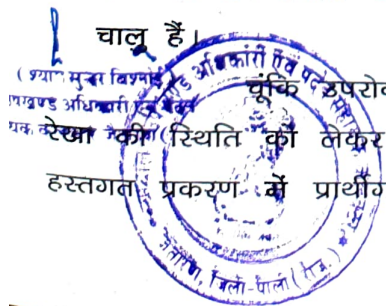 चालू हैं।
(श्याम सुन्दर विश्नोई)
उपखण्ड अधिकारी एवं पदेन
चूंकि उपरोक
रेखा की स्थिति को लेकर
हस्तगत प्रकरण में प्रार्थीग
उपखण्ड अधिकारी एवं पदेन सहायक
जैतारण, जिला-पाली (राज.)